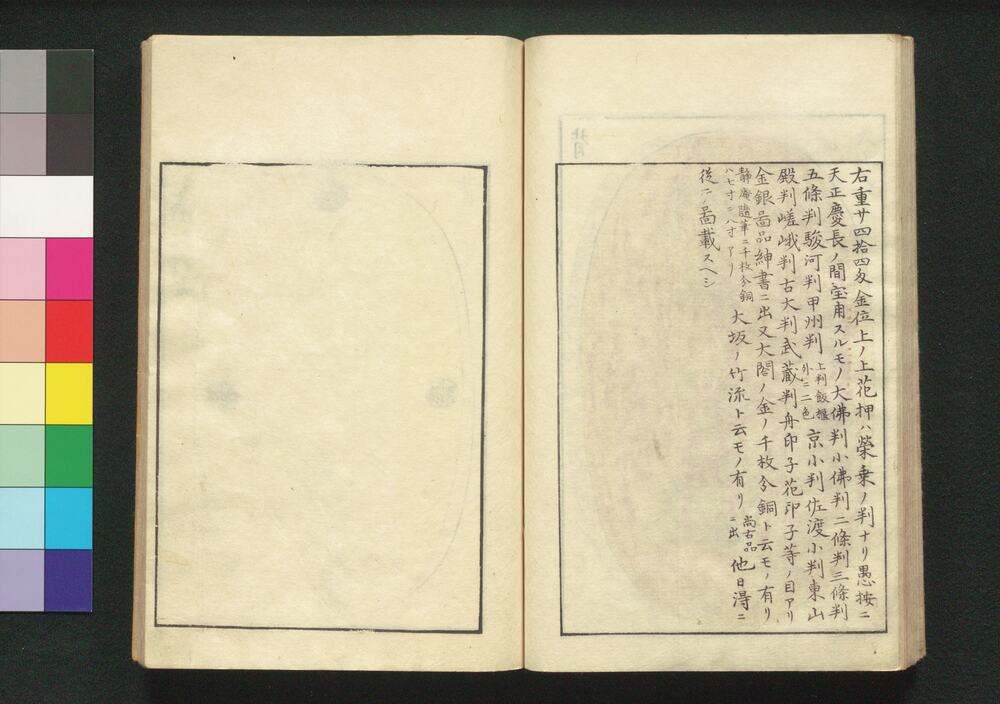 右重サ四拾四匁金位上ノ上花押ハ榮乗ノ判ナリ愚按ニ
天正慶長ノ間宝用スルモノ大佛判小佛判二條判三條判
五條判駿河判甲州判
上判飯櫃
外ニ二色
京小判佐渡小判東山
殿判嵯峨判古大判武蔵判舟印子花印子等ノ目アリ
金銀啚品紳書ニ出又大閤ノ金ノ千枚分銅ト云モノ有リ
静庵隨筆ニ千枚分銅
ハ七寸ニ八寸アリ
大坂ノ竹流ト云モノ有リ
尚古品
ニ出
他日淂ニ
從ニ啚載スヘシ